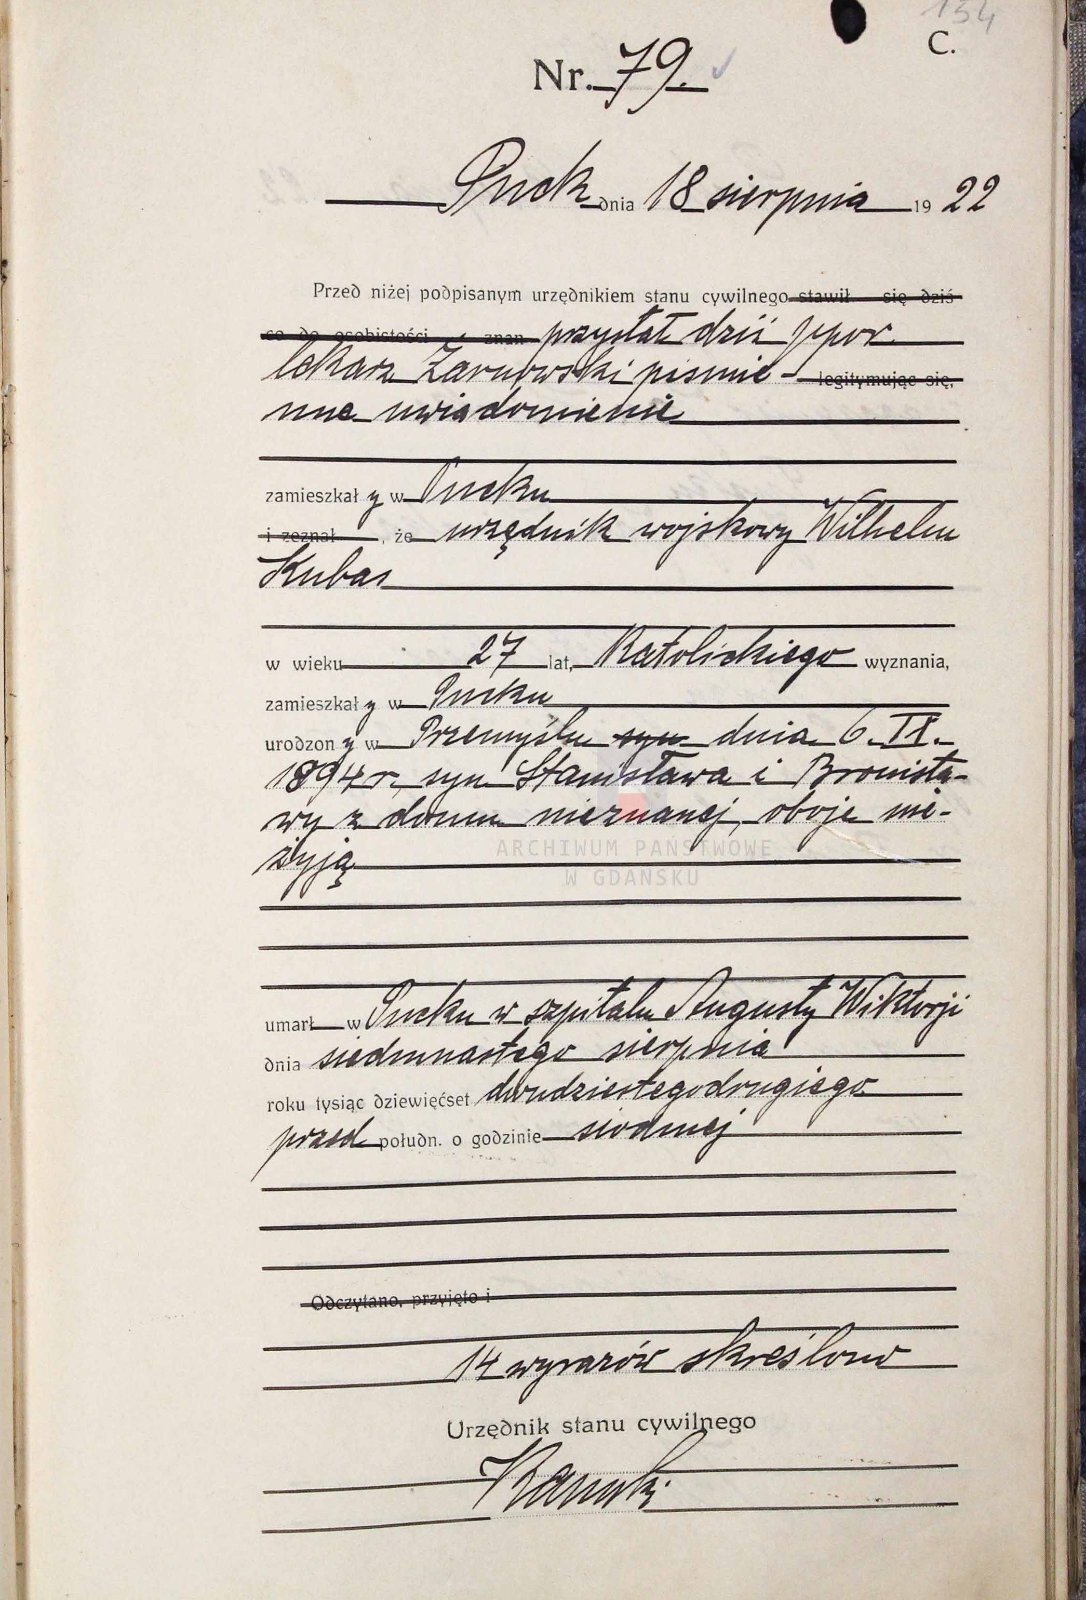 134
C.
Nr. 79.
Puck dnia 18 sierpnia 1922
Przed niżej podpisanym urzędnikiem stanu cywilnego stawił się dziś
co do osobistości znan przysłał dziś ppor.
lekarz Żarnowski piśmie- legitymując się,
nne uwiadomienie
zamieszkał y w Pucku
i zeznał , że urzędnik wojskowy Wilhelm
Kubas
w wieku 27 lat, Katolickiego wyznania,
zamieszkał y w Pucku
urodzon y w Przemyślu syn dnia 6. IX.
1894 r., syn Stanisława i Bronisła-
wy z domu nieznanej, oboje nie-
żyją
ARCHIWUM PAŃSTWOWE
W GDAŃSKU
umarł w Pucku w szpitalu Augusty Wiktorji
dnia siedmnastego sierpnia
roku tysiąc dziewięćset dwudziestegodrugiego
przed połudn. o godzinie siódmej
Odczytano, przyjęto i
14 wyrazów skreślono
Urzędnik stanu cywilnego